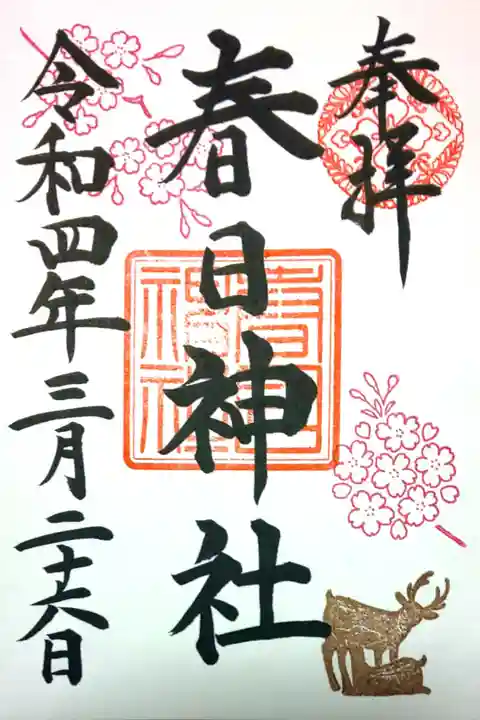 奉拝
春日神社
春日神社
令和四年三月二十六日